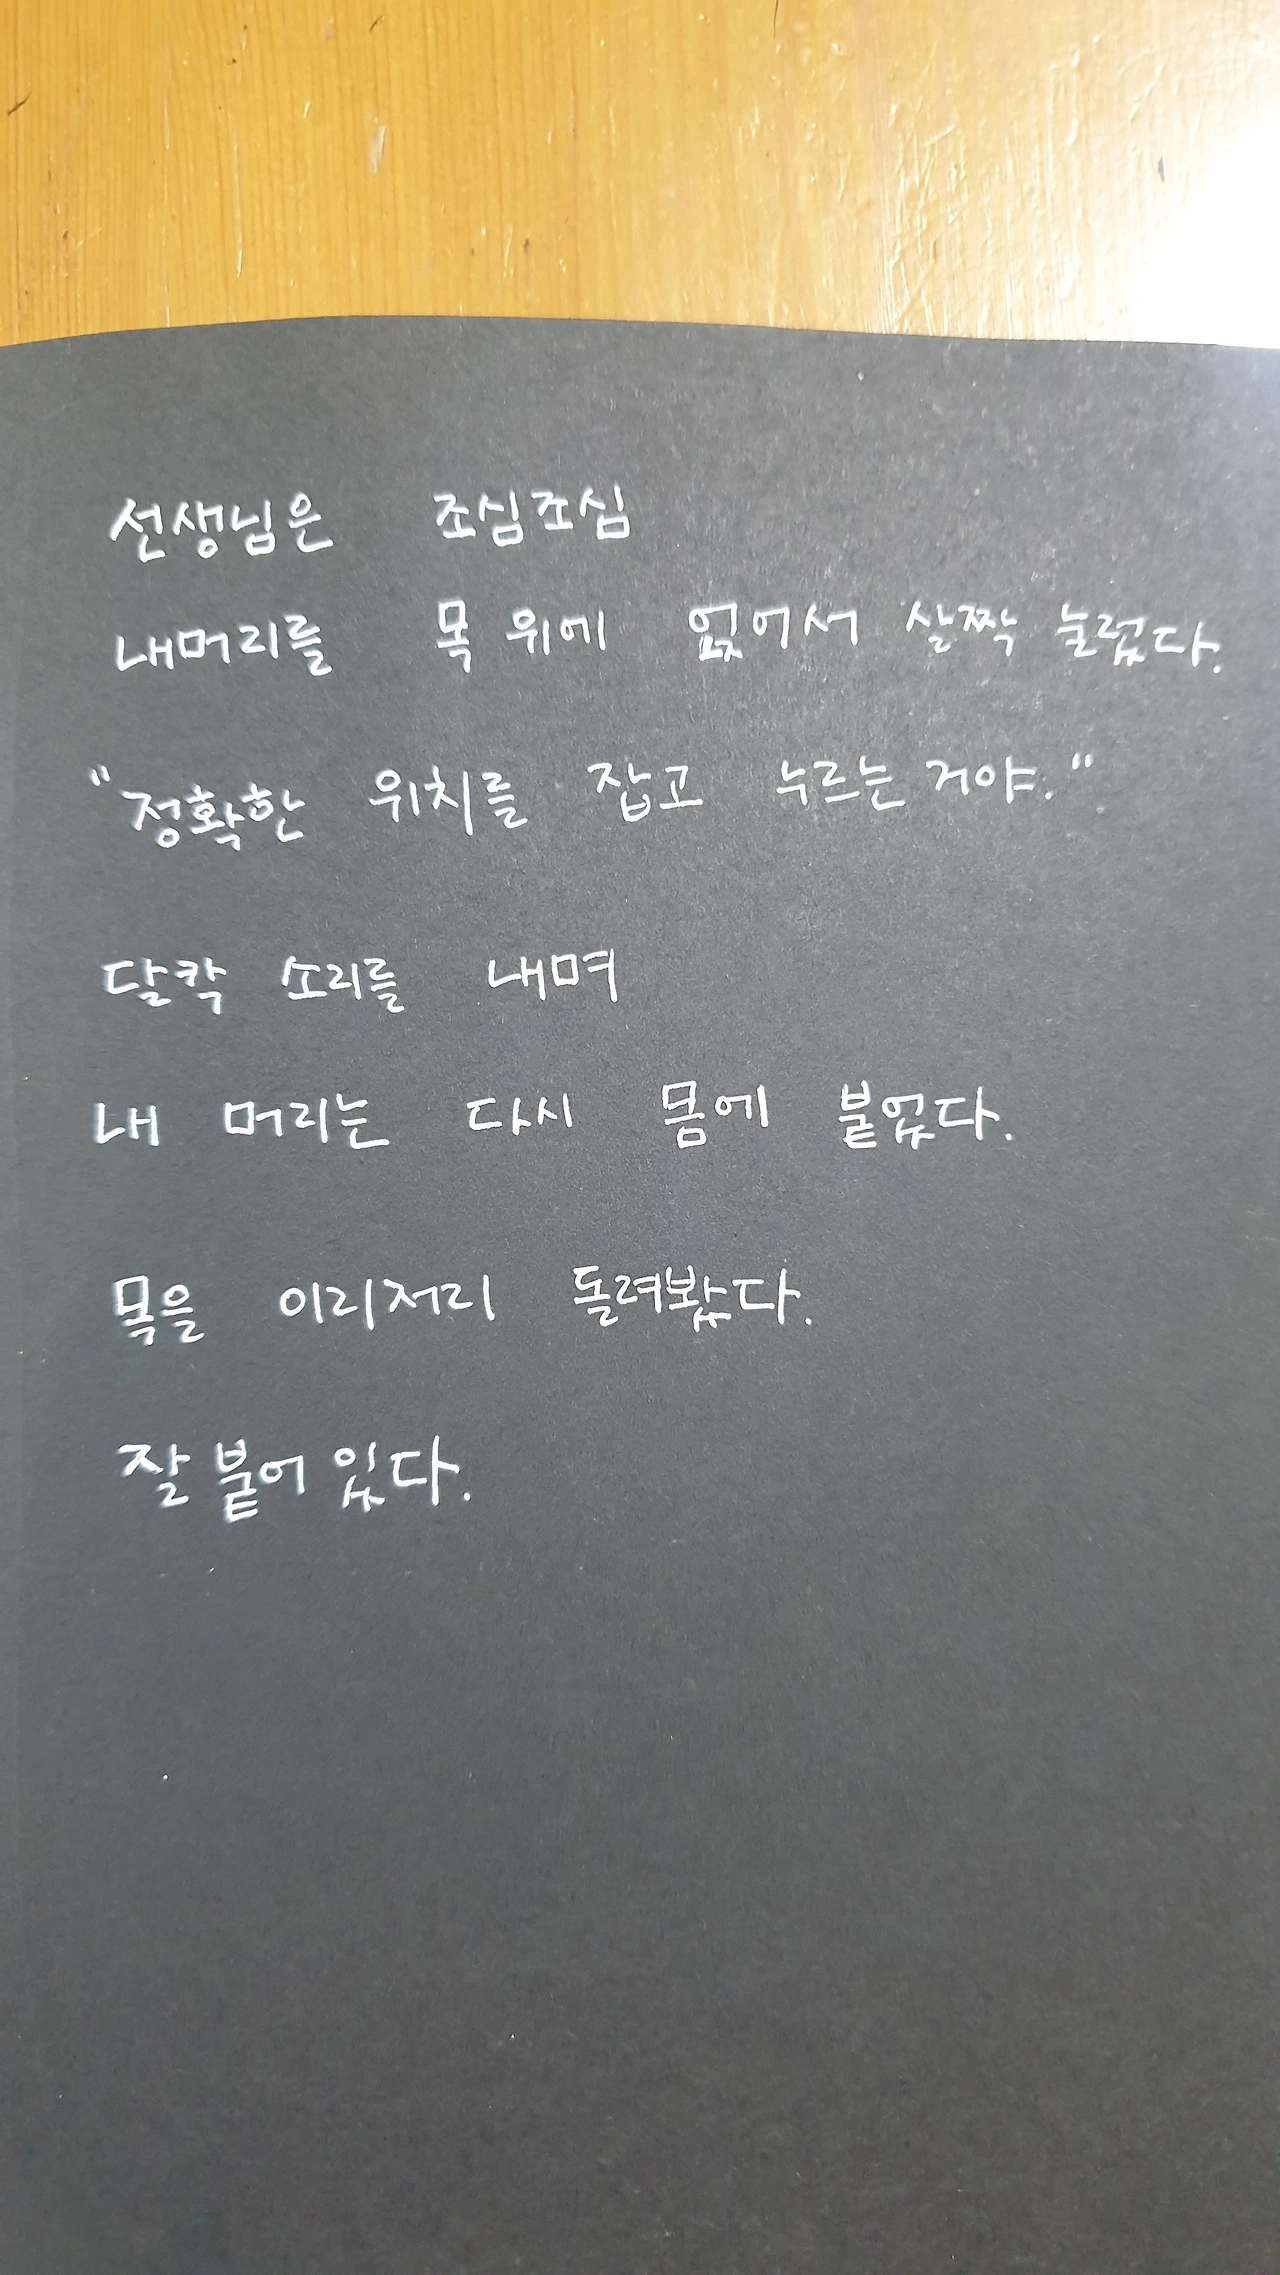 선생님은 조심조심
내머리를 목 위에 얹어서 살짝 눌렀다.
"정확한 위치를 잡고 누르는 거야."
달칵 소리를 내며
내 머리는 다시 몸에 붙었다.
목을 이리저리 돌려봤다.
잘 붙어 있다.